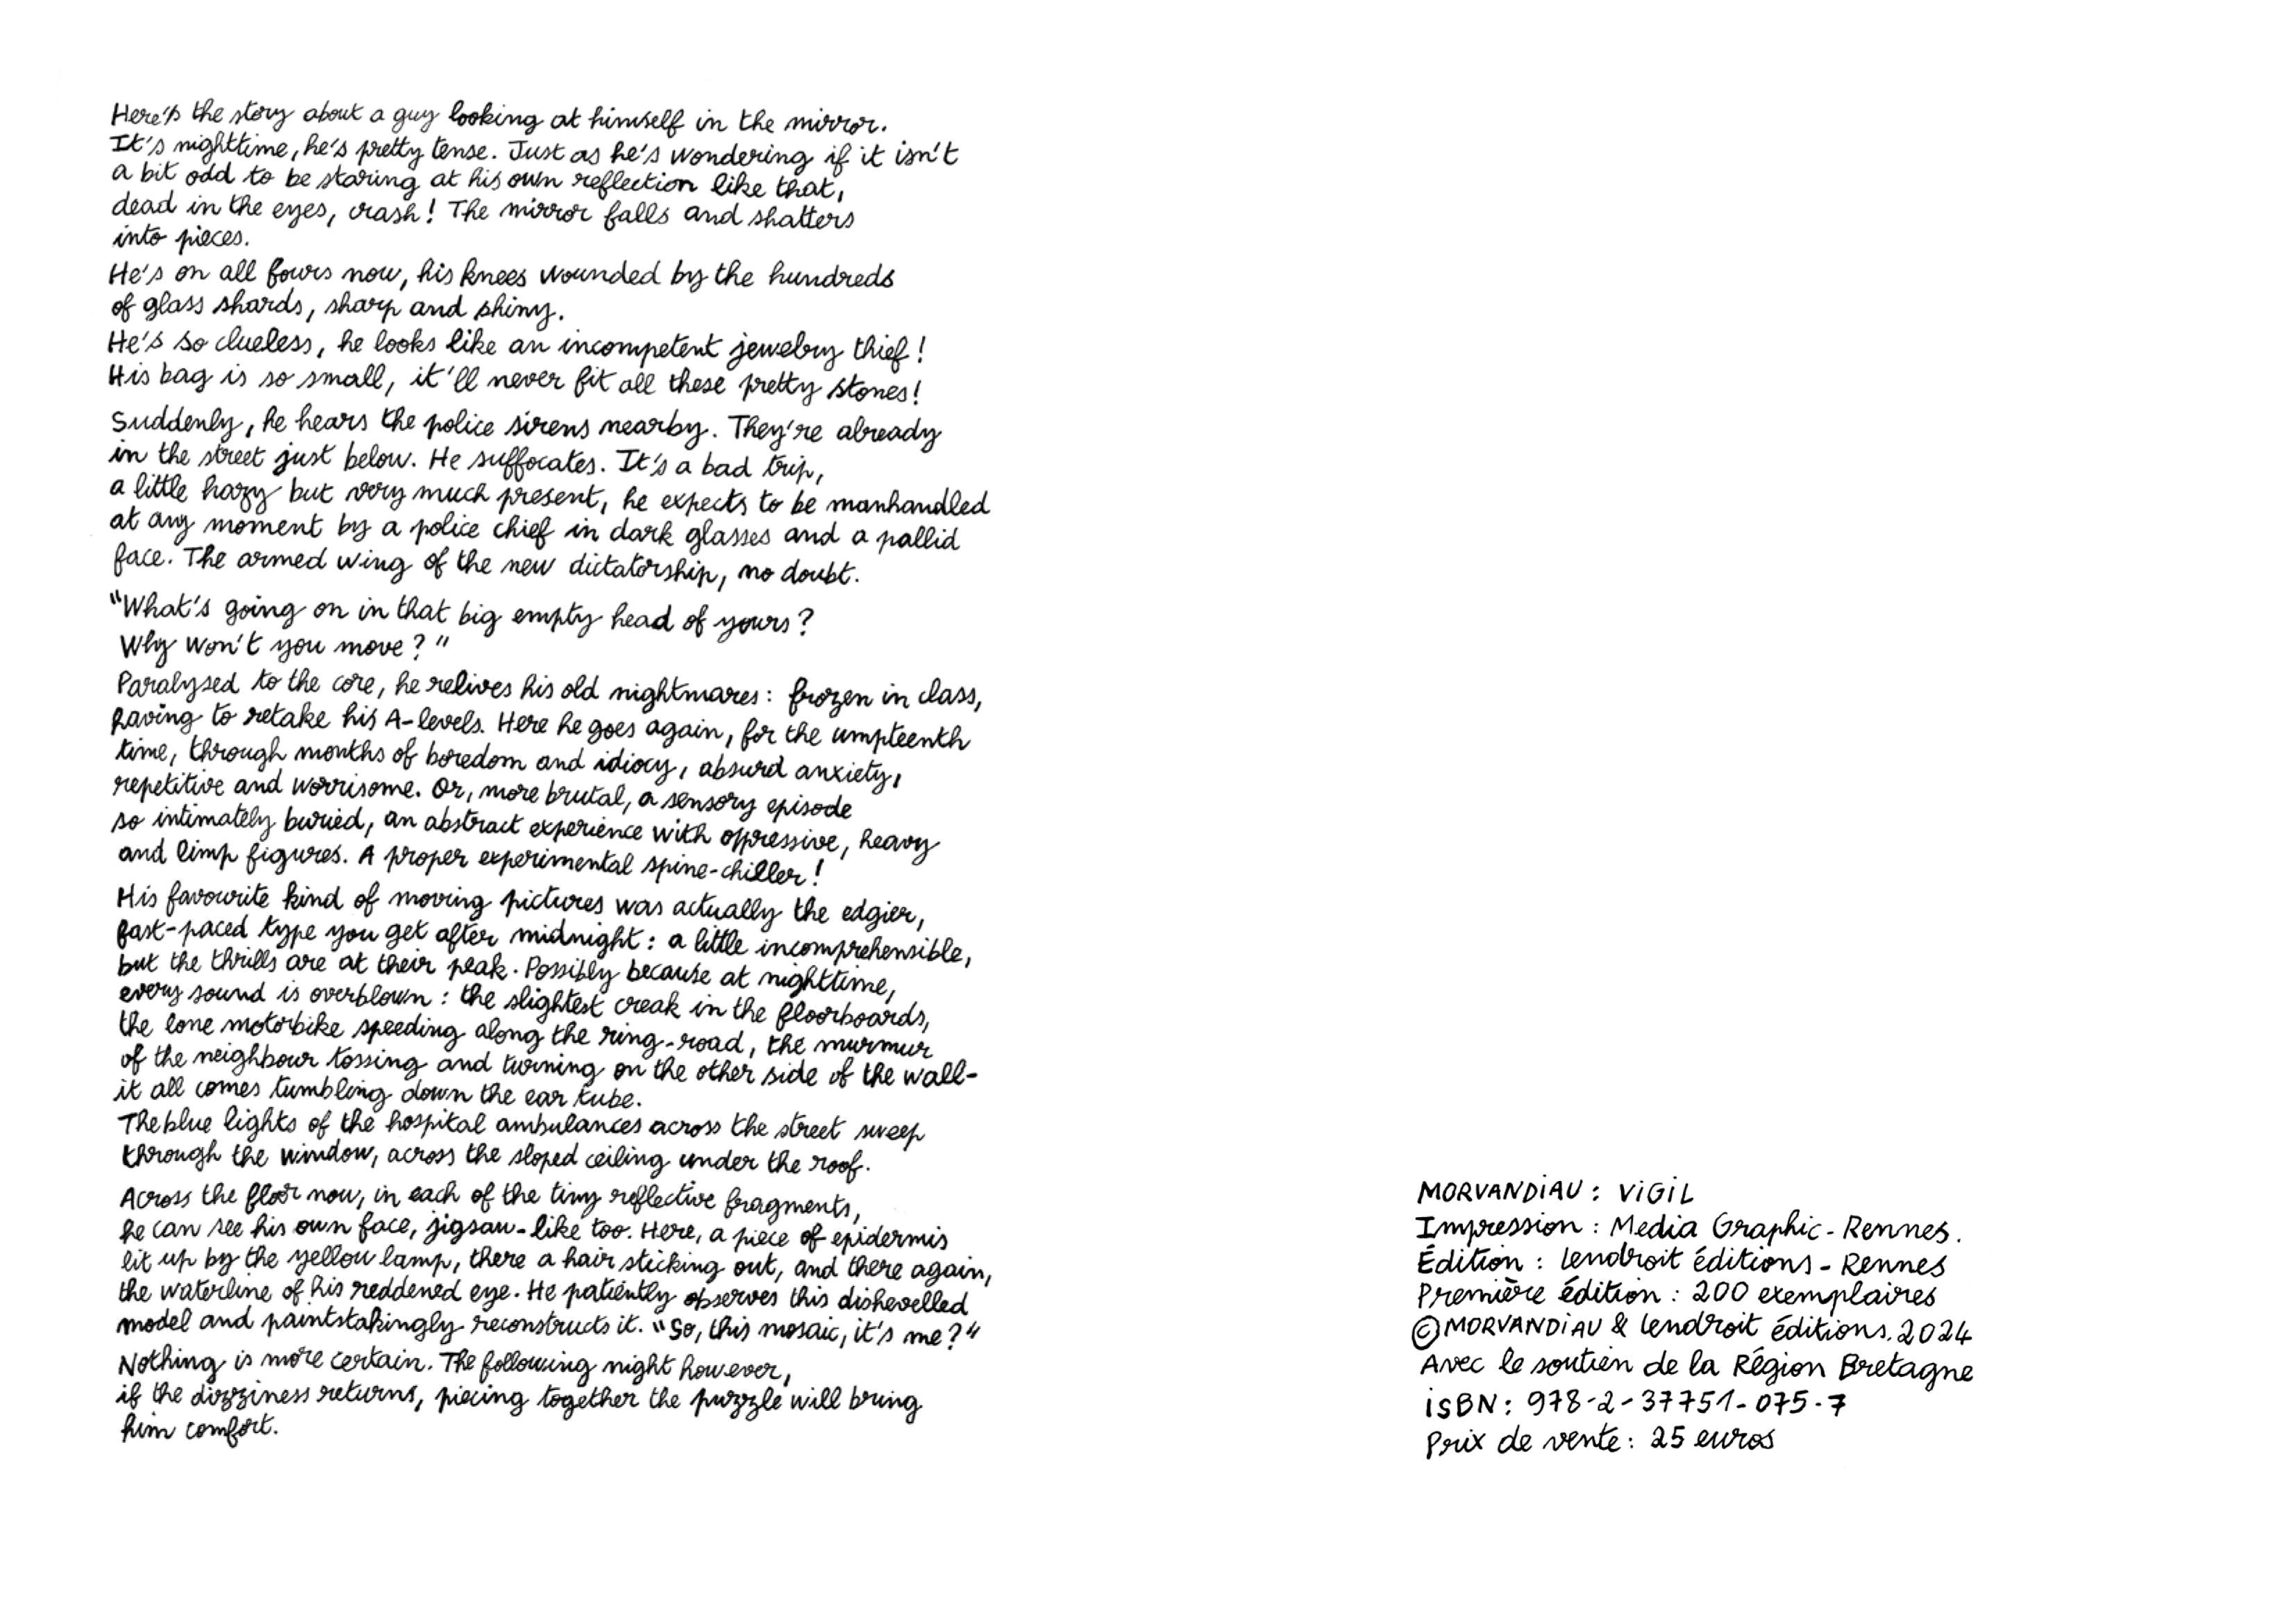 Here's the story about a guy looking at himself in the mirror.
It's nighttime, he's pretty tense. Just as he's wondering if it isn't
a bit odd to be staring at his own reflection like that,
dead in the eyes, crash! The mirror falls and shatters
into pieces.
He's on all fours now, his knees wounded by the hundreds
of glass shards, sharp and shiny.
He's so clueless, he looks like an incompetent jewelry thief!
His bag is so small, it'll never fit all these pretty stones!
Suddenly, he hears the police sirens nearby. They're already
in the street just below. He suffocates. It's a bad trip,
a little hazy but very much present, he expects to be manhandled
at any moment by a police chief in dark glasses and a pallid
face. The armed wing of the new dictatorship, no doubt.
"What's going on in that big empty head of yours?
Why won't you move?"
Paralysed to the core, he relives his old nightmares: frozen in class,
having to retake his A-levels. Here he goes again, for the umpteenth
time, through months of boredom and idiocy, absurd anxiety,
repetitive and worrisome. Or, more brutal, a sensory episode
so intimately buried, an abstract experience with oppressive, heavy
and limp figures. A proper experimental spine-chiller!
His favourite kind of moving pictures was actually the edgier,
fast-paced type you get after midnight: a little incomprehensible,
but the thrills are at their peak. Possibly because at nighttime,
every sound is overblown: the slightest creak in the floorboards,
the lone motorbike speeding along the ring-road, the murmur
of the neighbour tossing and turning on the other side of the wall-
it all comes tumbling down the ear tube.
The blue lights of the hospital ambulances across the street sweep
through the window, across the sloped ceiling under the roof.
Across the floor now, in each of the tiny reflective fragments,
he can see his own face, jigsaw-like too. Here, a piece of epidermis
lit up by the yellow lamp, there a hair sticking out, and there again,
the waterline of his reddened eye. He patiently observes this dishevelled
model and paintstakingly reconstructs it. "So, this mosaic, it's me?"
Nothing is more certain. The following night however,
if the dizziness returns, piecing together the puzzle will bring
him comfort.
MORVANDiAU : ViGiL
Impression : Media Graphic - Rennes.
Édition : lendroit éditions - Rennes
Première édition : 200 exemplaires
©MORVANDiAU & lendroit éditions. 2024
Avec le soutien de la Région Bretagne
iSBN : 978-2-37751-075-7
Prix de vente : 25 euros